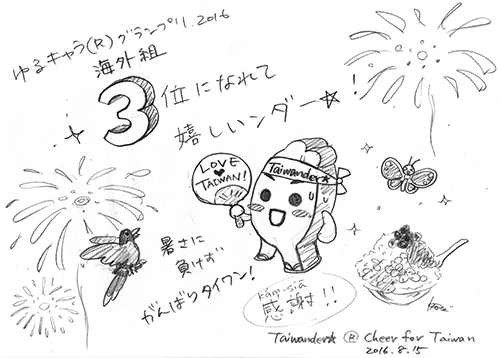 ゆるキャラ(R)グランプリ2016
海外組
3位になれて
嬉しいンダー☆!
LOVE
♥
TAIWAN!
Taiwander☆
暑さに
負けず
がんばりタイワン!
kám-siā
感謝!!
Taiwander☆ ® Cheer for Taiwan
2016.8.15